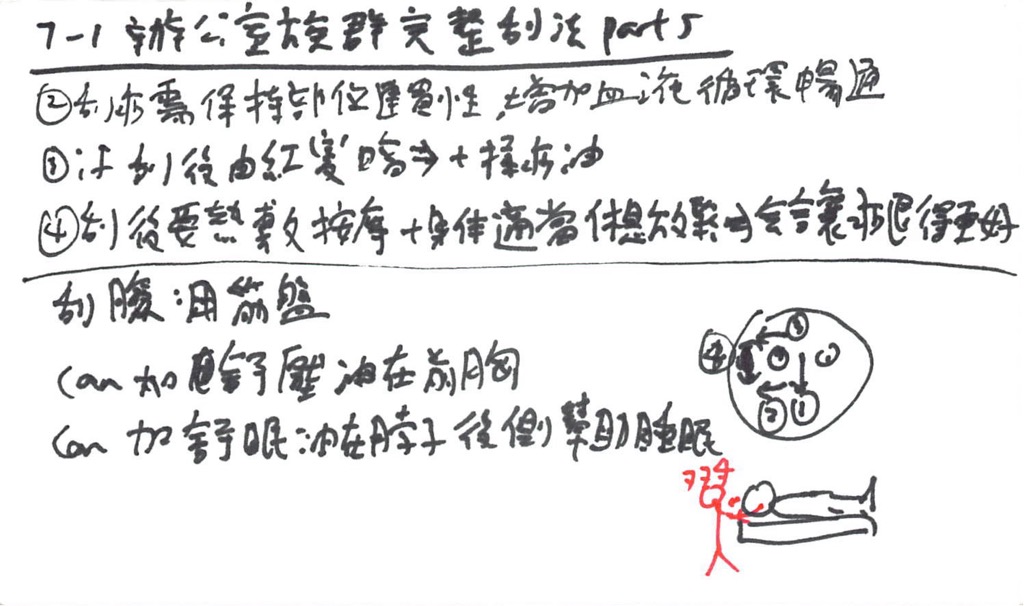 7-1 辦公室族群完整刮法 part 5
②刮痧需保持部位連貫性,增加血液循環暢通
③ 刮後由紅變暗⇒+揉痧油
④刮後要熱敷按摩+身體適當休息效果⇒會讓痧退得更好
刮腹:用筋盤
can 加 舒壓油在前胸
can 加舒眠油在脖子後側幫助睡眠
③
④
②①